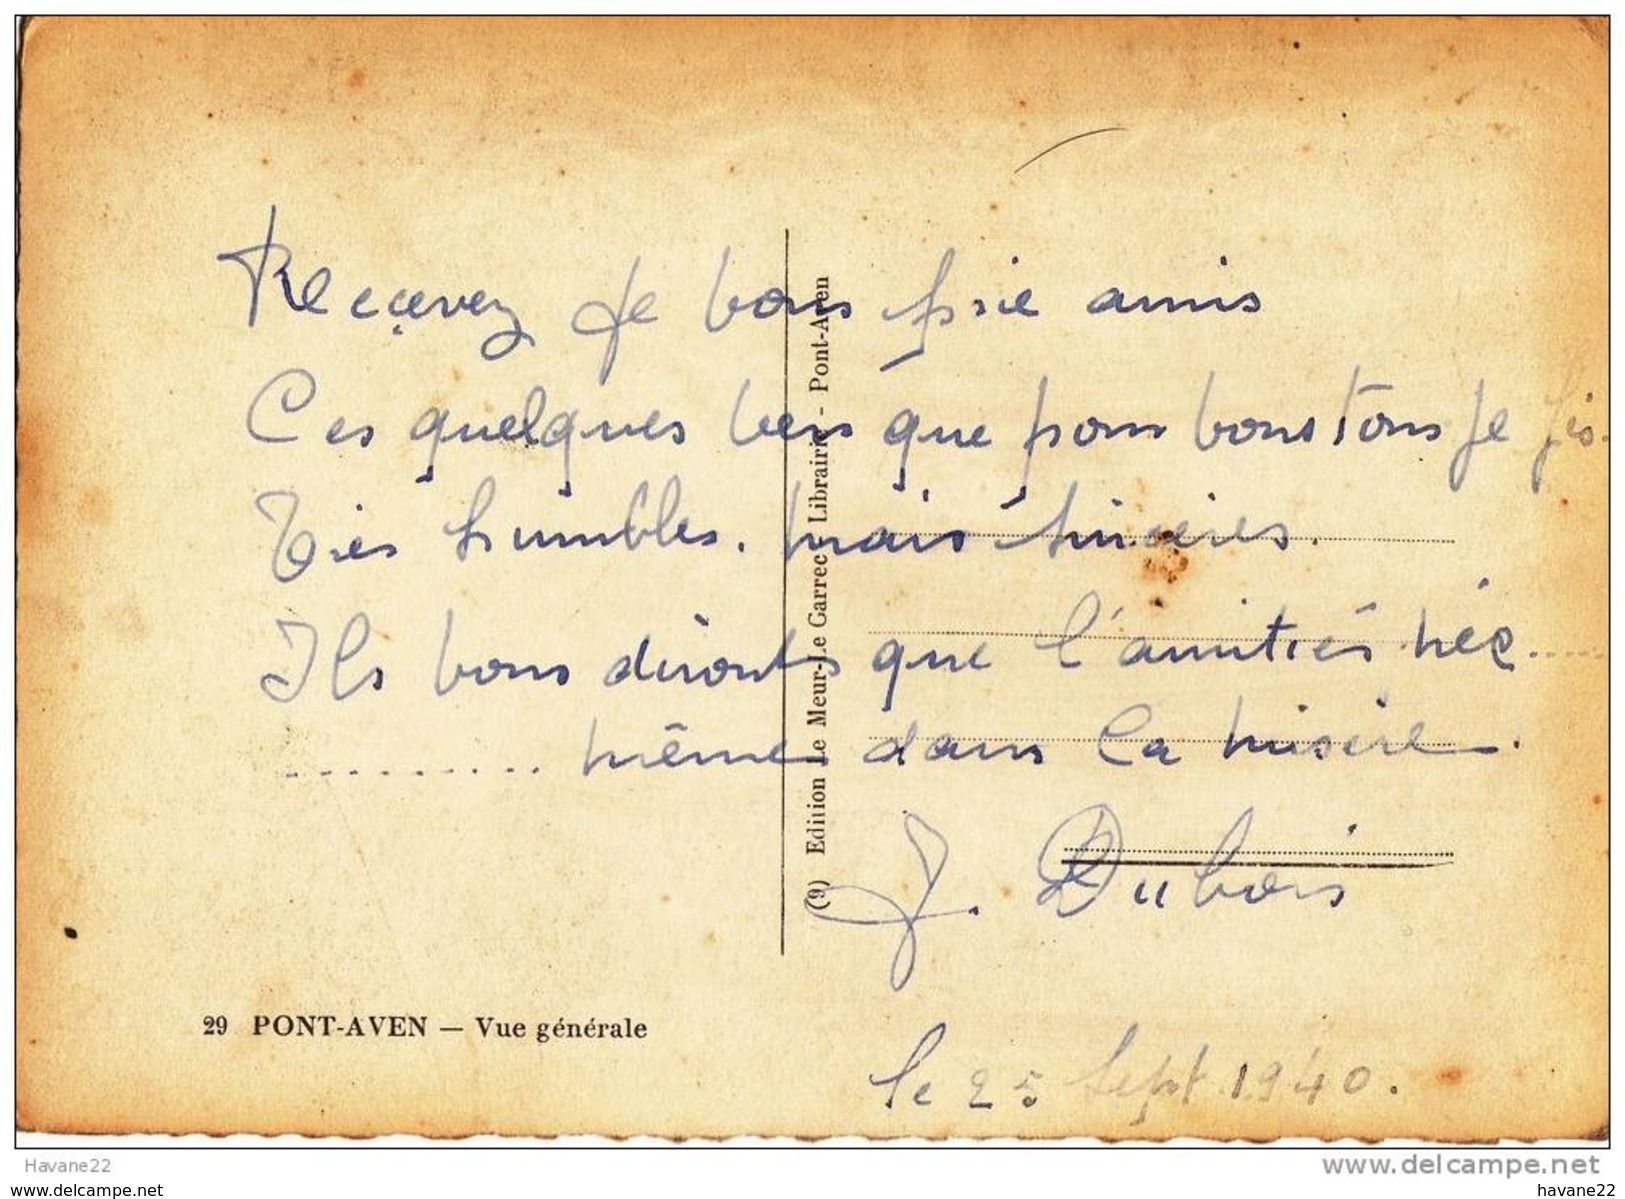 Recevez je vous prie amis
Ces quelques vers que pour vous tous je fis.
Très humbles. mais sincères.
Ils vous dironts que l'amitiés née.....
.......... même dans la misère.
J. Dubois
le 25 Sept 1940.
(9) Edition Le Meur-Le Garrec - Librairie - Pont-Aven
29 PONT-AVEN — Vue générale
Havane22
www.delcampe.net
www.delcampe.net
havane22